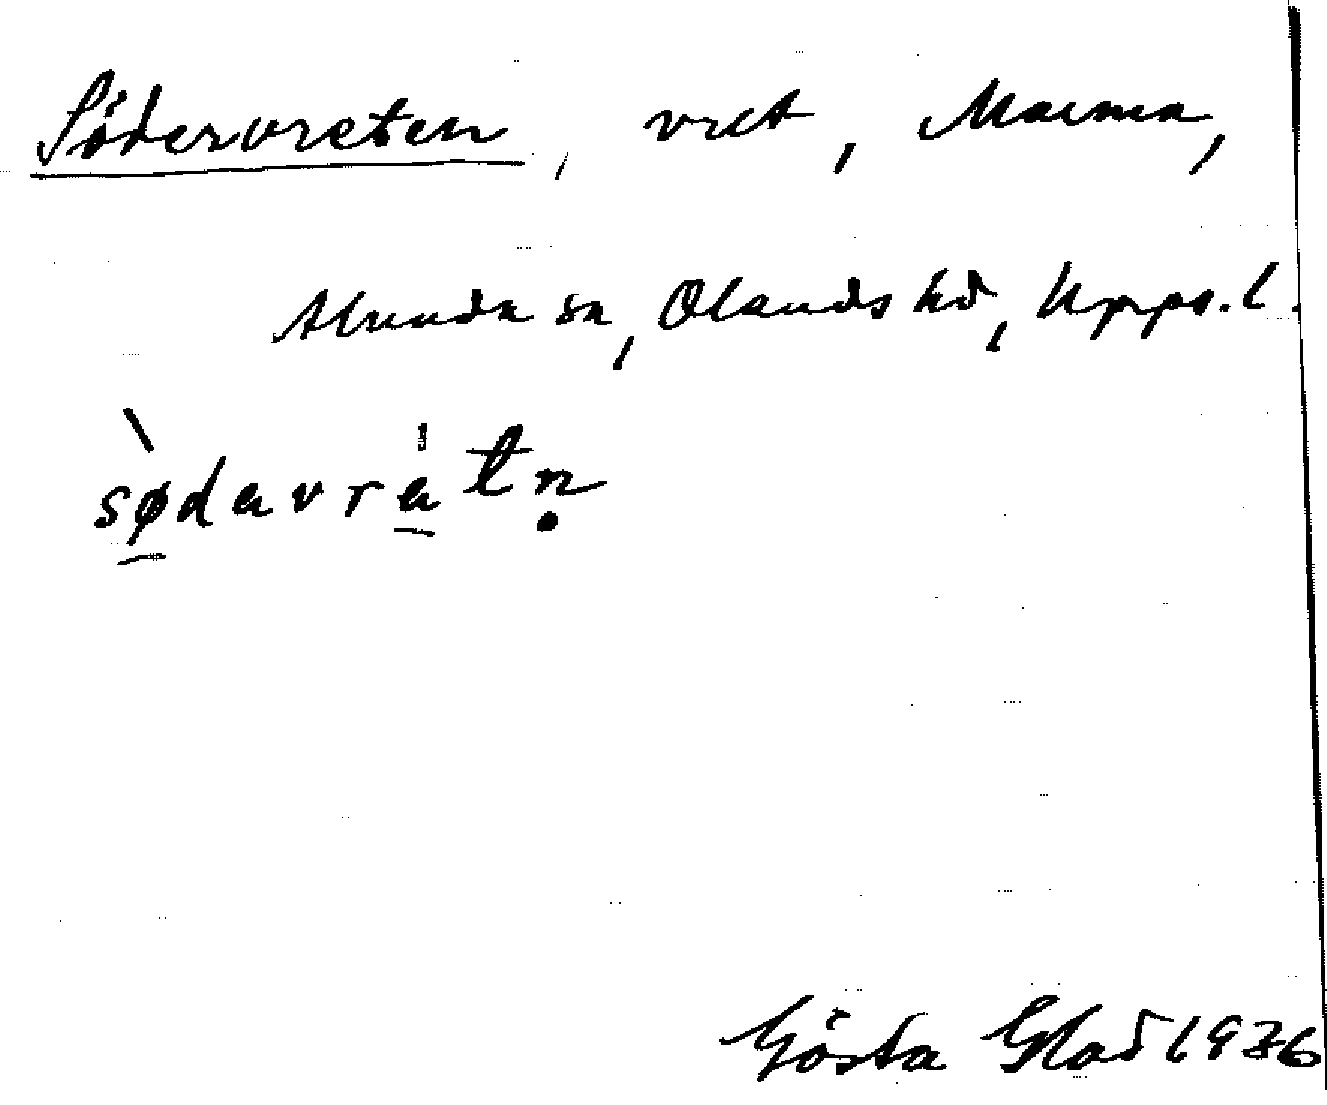 Södervreten, vret, Marma,
Alunda sn, Olands hd, Upps. l.
sødavrätn̩
Gösta Glad 1936